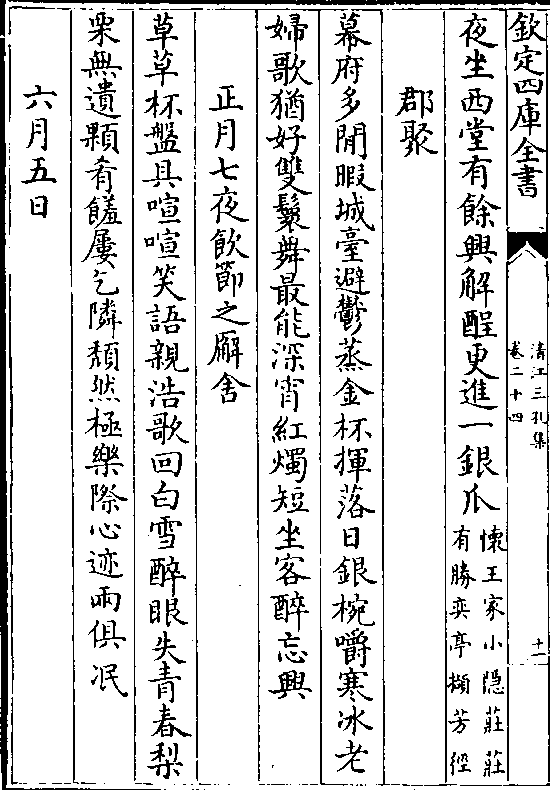 欽定四庫全書
清江三孔集
卷二十四
十一
夜坐西堂有餘興解酲更進一銀爪
懷王家小隱莊莊
有勝奕亭擷芳徑
郡聚
幕府多閒暇城臺避鬱蒸金杯揮落日銀椀嚼寒冰老
婦歌猶好雙鬟舞最能深宵紅燭短坐客醉忘興
正月七夜飲節之廨舍
草草杯盤具喧喧笑語親浩歌回白雪醉眼失青春梨
栗無遺顆肴饈屢乞隣頽然極樂際心迹兩俱冺
六月五日